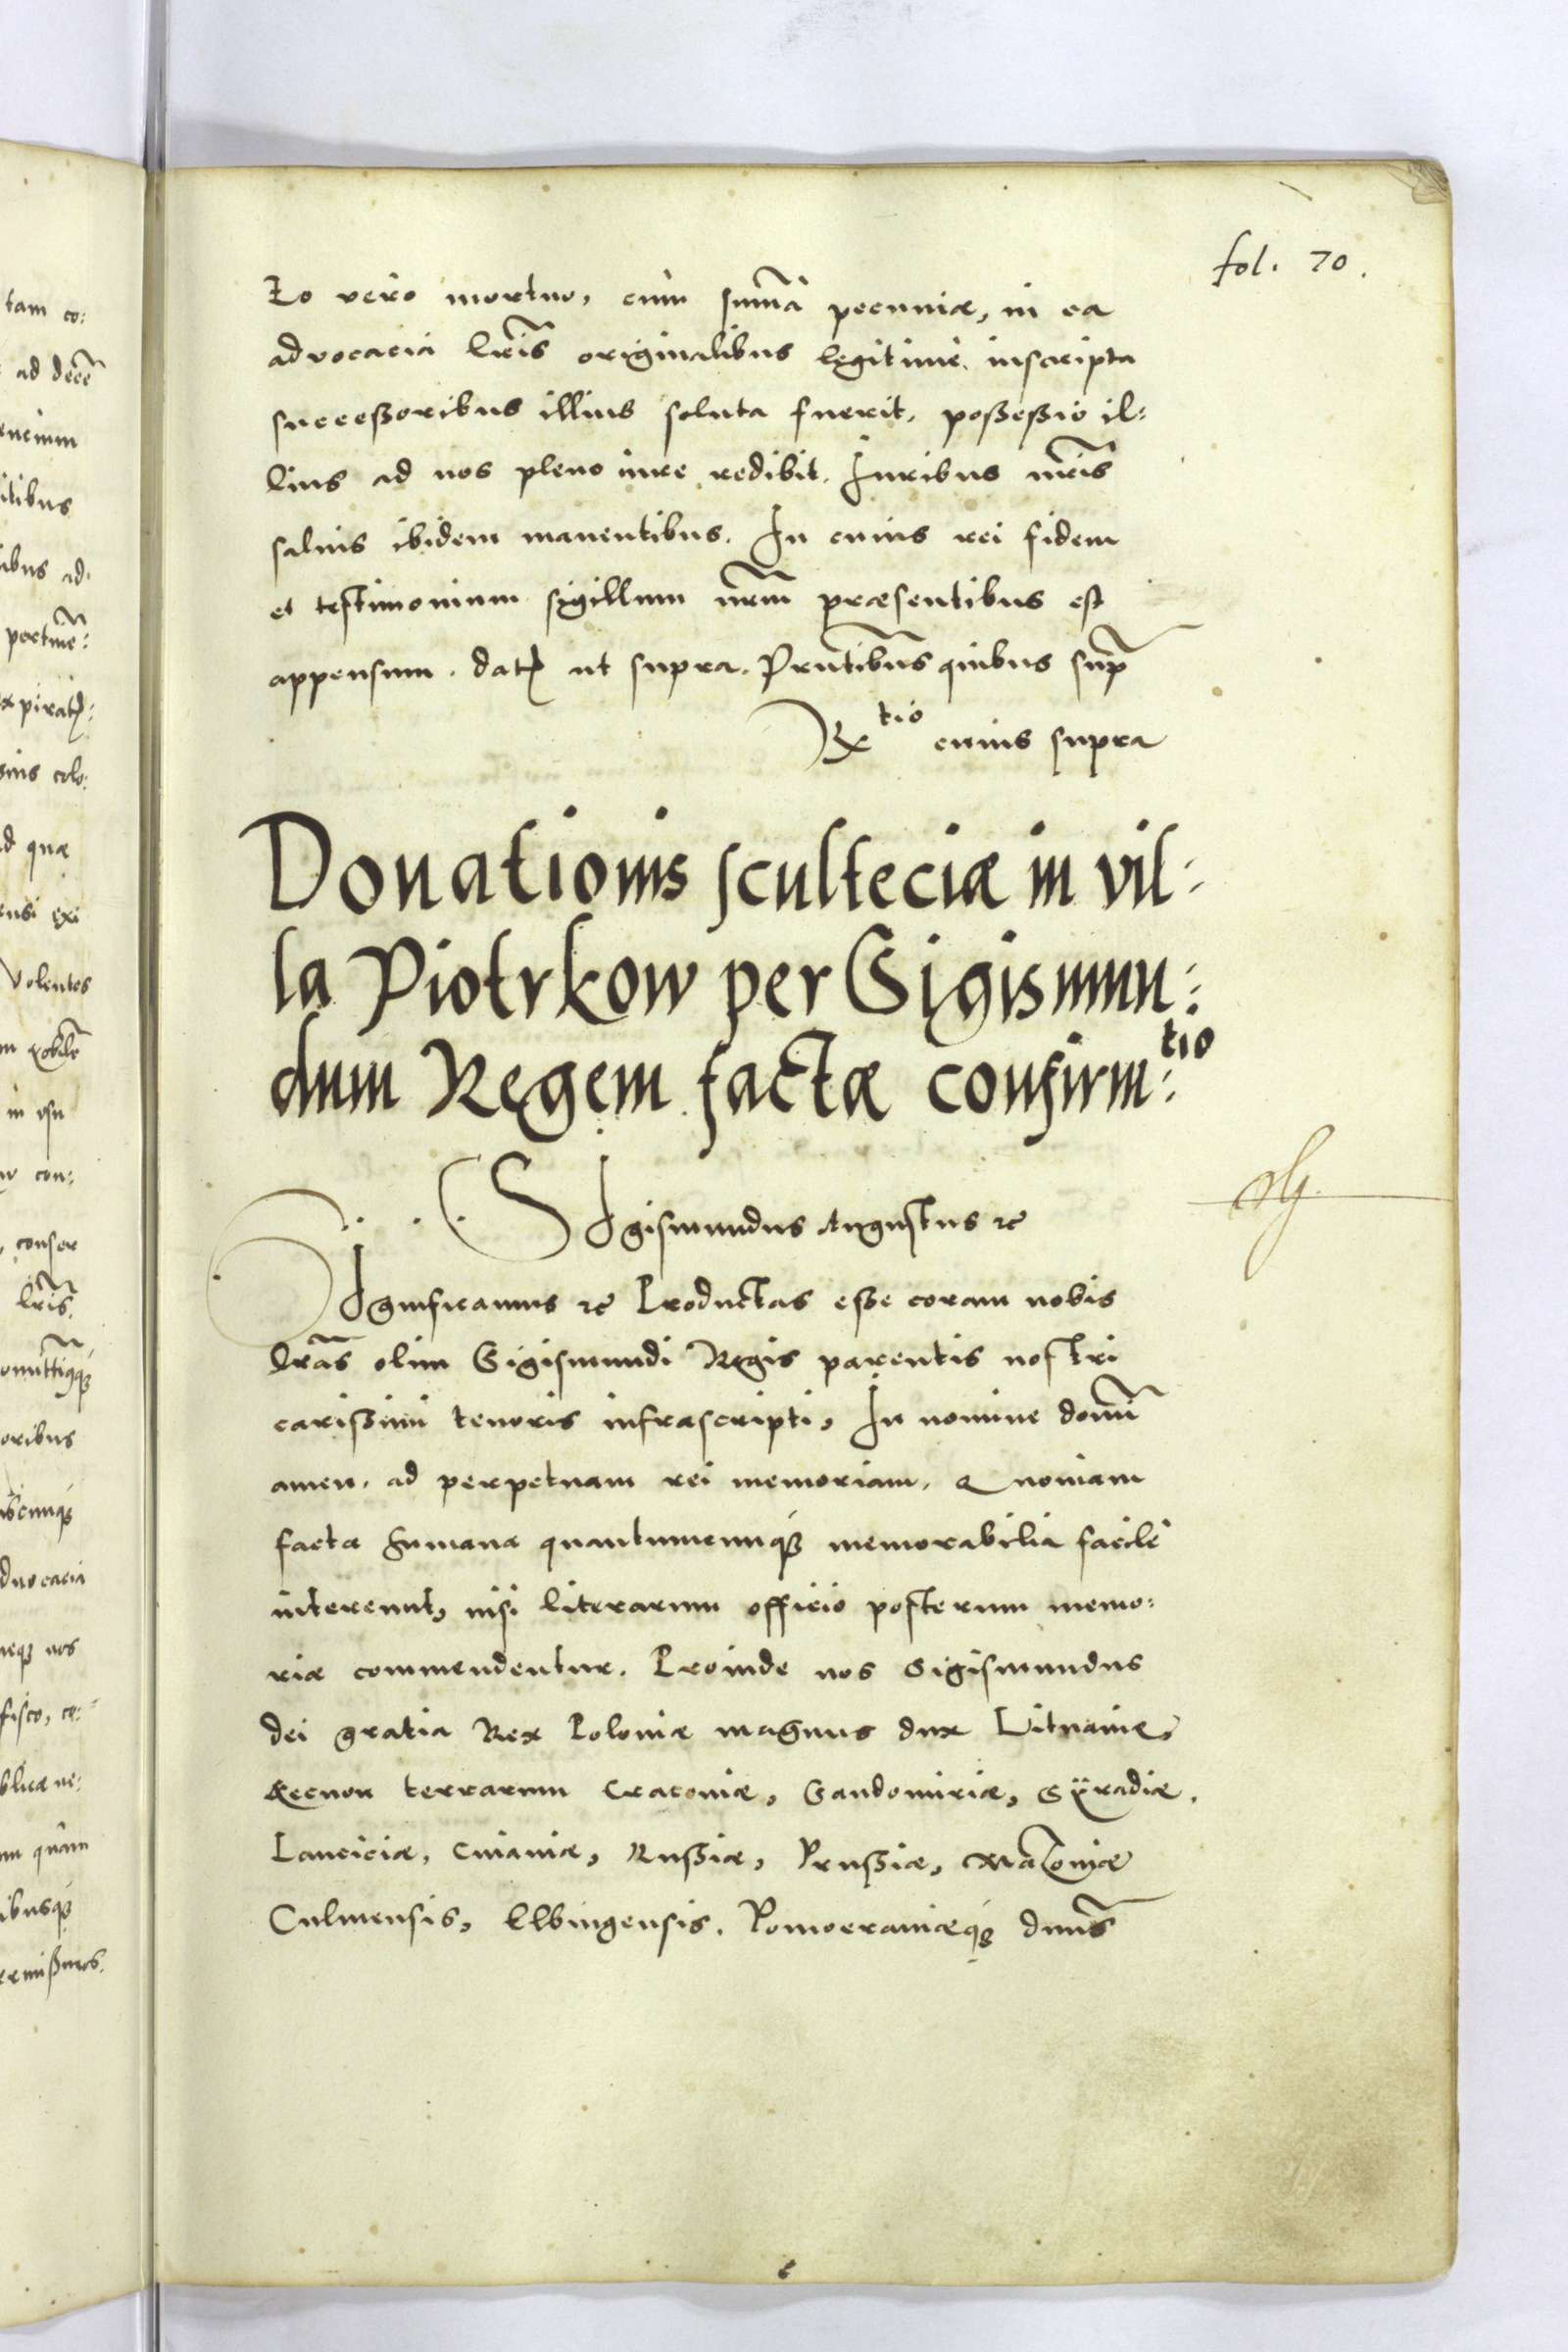 fol. 70.
Eo vero mortuo, cum summa pecuniæ, in ea
advocacia lris originalibus legitime inscripta
successoribus illius soluta fuerit, possessio il:
lius ad nos pleno iure redibit. Iuribus nris
salvis ibidem manentibus. In cuius rei fidem
et testimonium sigillum nrm præsentibus est
appensum. dat ut supra. Prntibus quibus supra
Rtio cuius supra
Donationis scultecia in vil:
la Piotrkow per Sigismun:
dum Regem facta confirm:tio
SIgismundus Augustus etc
SIgnificamus etc Productas esse coram nobis
lras olim Sigismundi Regis parentis nostri
carissimi tenoris infrascripti, In nomine domini
amen. ad perpetuam rei memoriam. Quoniam
facta humana quantumcunque memorabilia facile
intereunt, nisi literarum officio posterum memo:
riæ commendentur. Proinde nos Sigismundus
dei gratia Rex Poloniæ magnus dux Lituaniæ,
Necnon terrarum Cracoviæ, Sandomiriæ, Syradiæ,
Lanciciæ, Cuiaviæ, Russiæ, Prussiæ, Mazoviæ
Culmensis, Elbingensis, Pomoeraniæque dnus
tam co:
ad dece
itibus
ibus ad.
expirat:
d quæ
ensi exi
Volentes
m nobile
in usu
con:
conser
lris.
oribus
dvocacia
neque nos
fisco, co:
blicæ ne:
m quam
ibusque